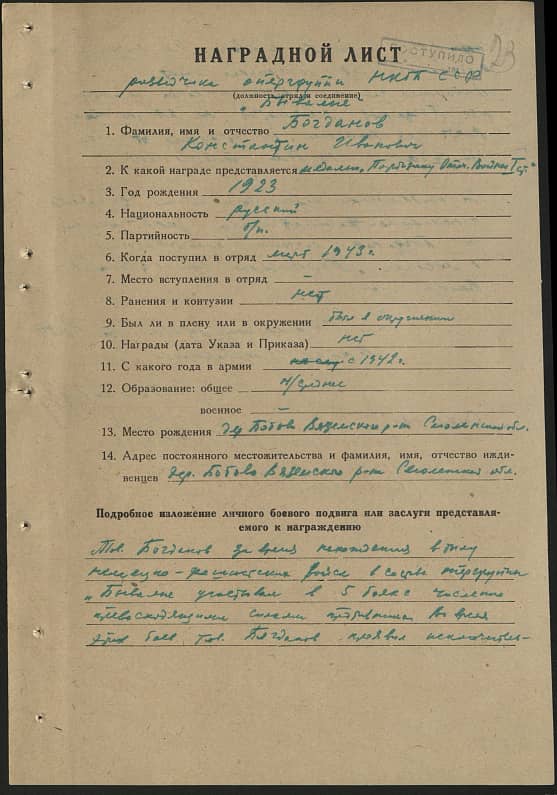 23
ПОСТУПИЛО
НАГРАДНОЙ ЛИСТ
разведчика опергруппы НКГБ СССР
(должность, отряд и соединение)
„Бывалые"
1. Фамилия, имя и отчество Богданов
Константин Иванович
2. К какой награде представляется медали „Партизану Отеч. Войны I ст."
3. Год рождения 1923
4. Национальность русский
5. Партийность б/п.
6. Когда поступил в отряд март 1943 г.
7. Место вступления в отряд –
8. Ранения и контузии нет
9. Был ли в плену или в окружении был в окружении
10. Награды (дата Указа и Приказа) нет
11. С какого года в армии с 1942 г.
12. Образование: общее н/среднее
военное –
13. Место рождения дер. Ботово Вяземского р-на Смоленской обл.
14. Адрес постоянного местожительства и фамилия, имя, отчество ижди-
венцев дер. Ботово Вяземского р-на Смоленской обл.
Подробное изложение личного боевого подвига или заслуги представля-
емого к награждению
Тов. Богданов за время нахождения в тылу
немецко-фашистских войск в составе опергруппы
„Бывалые участвовал в 5 боях с численно
превосходящими силами противника. Во время
этих боев тов. Богданов проявил исключитель-